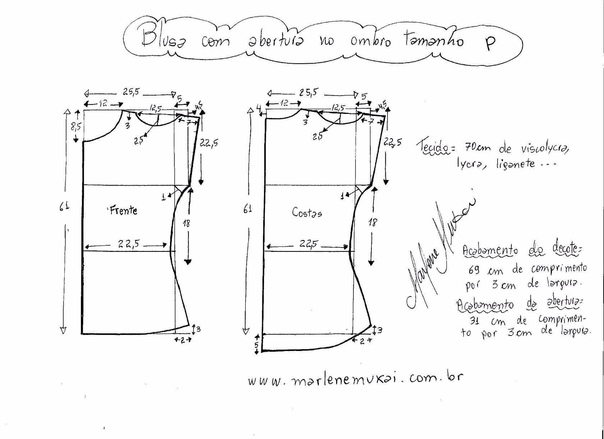 Blusa com abertura no ombro tamanho P
25,5
5
12
12,5
8,5
3
25
7
22,5
61
Frente
1
18
22,5
3
2
25,5
5
4
12
12,5
3
25
7
22,5
61
Costas
1
18
22,5
3
2
5
Tecido= 70cm de viscolycra,
lycra, liganete ...
Marlene Mukai
Acabamento do decote=
69 cm de comprimento
por 3 cm de largura.
Acabamento da abertura=
31 cm de comprimen-
to por 3 cm de largura.
www.marlenemukai.com.br